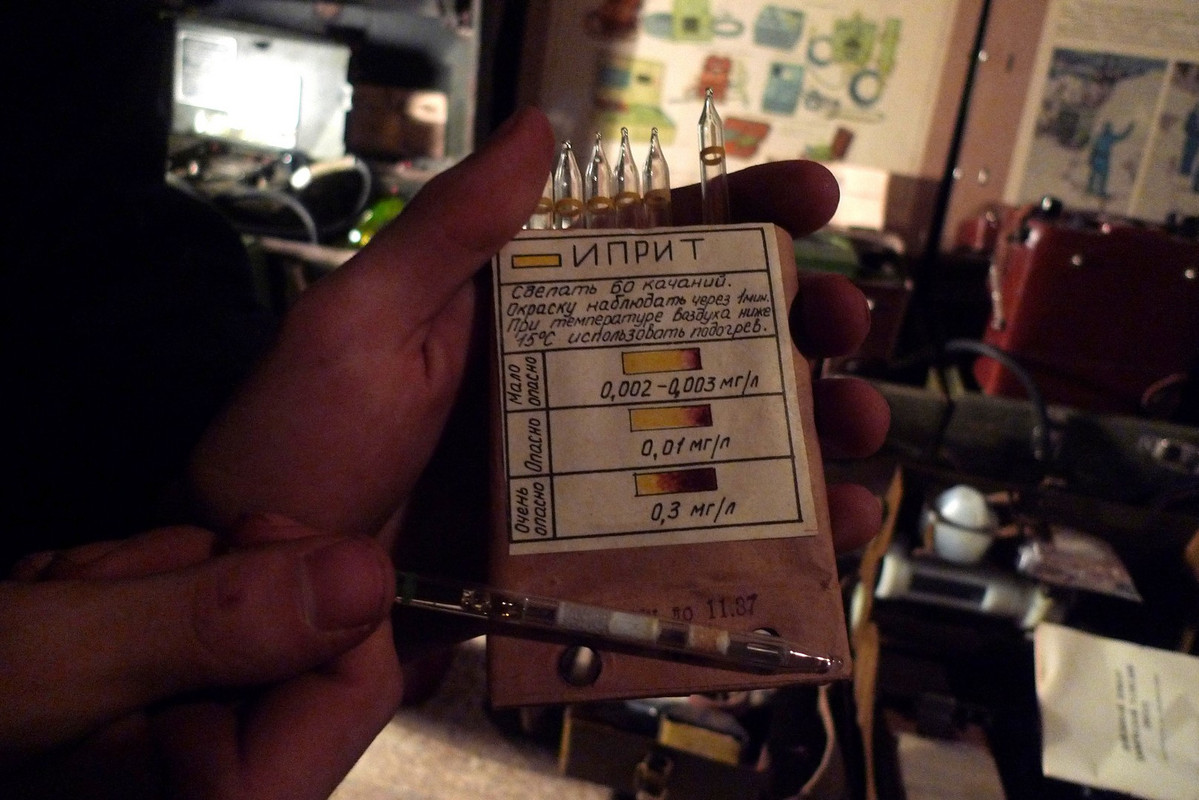 ИПРИТ
Сделать 60 качаний.
Окраску наблюдать через 1мин.
При температуре воздуха ниже
15°С использовать подогрев.
Мало
опасно
0,002-0,003 мг/л
Опасно
0,01 мг/л
Очень
опасно
0,3 мг/л
до 11.87